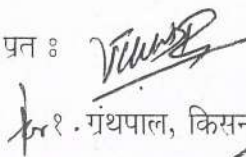 प्रत :
for १. ग्रंथपाल, किसन